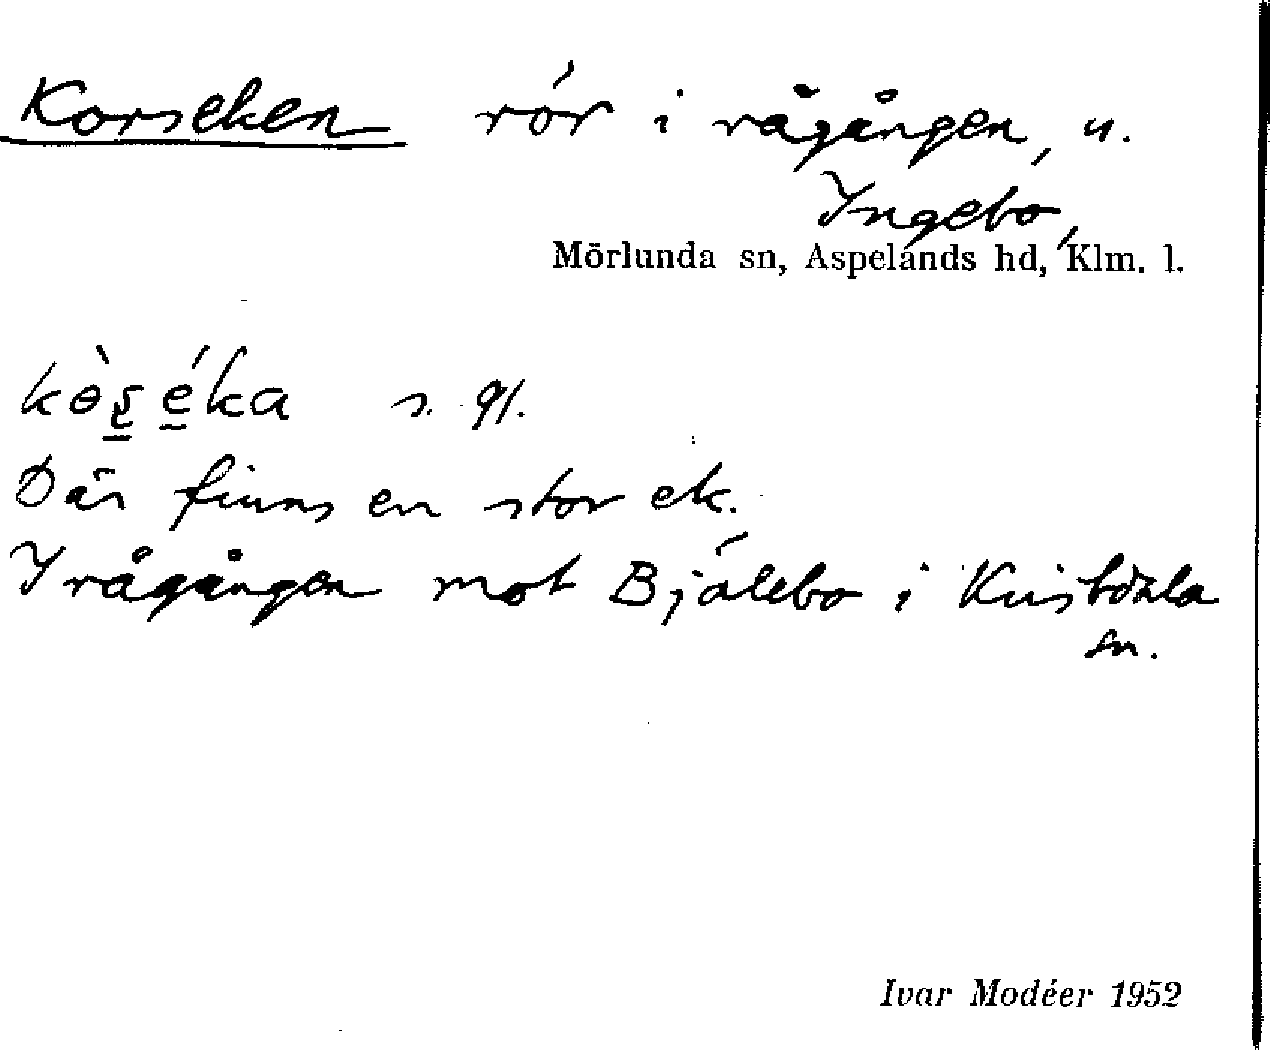 Korseken rör i rågången, u.
Ingebo,
Mörlunda sn, Aspelands hd, Klm. l.
s. 91.
Där finns en stor ek.
I rågången mot Bjälebo i Kristdala
sn.
Ivar Modéer 1952